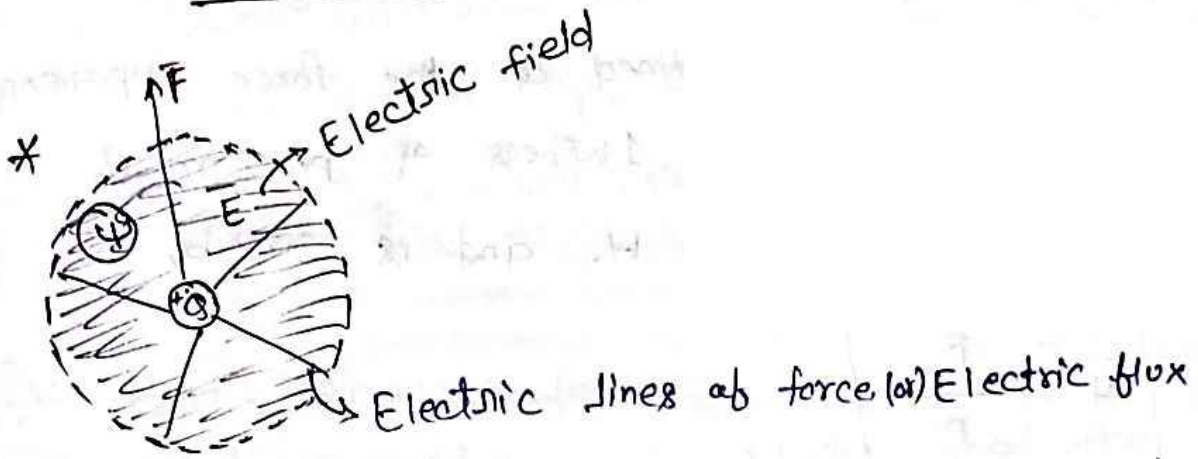 F̅
* Electric field
E̅
ψ
+Q
Electric lines of force (or) Electric flux